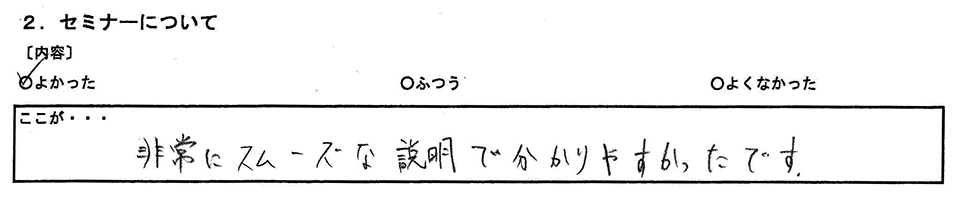 ２．セミナーについて
〔内容〕
○よかった ○ふつう ○よくなかった
ここが・・・
非常にスムーズな説明で分かりやすかったです.